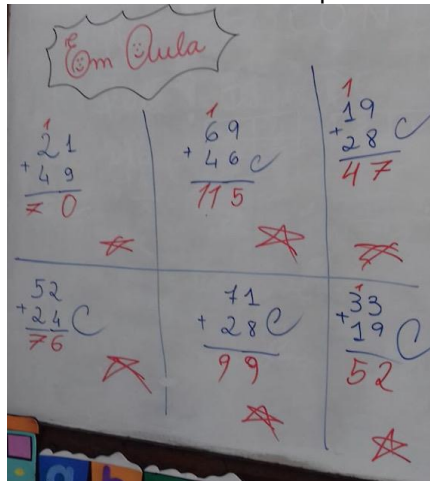 Em Aula
1
21
+ 49
70
1
69
+ 46 C
115
1
19
+ 28 C
47
52
+ 24 C
76
71
+ 28 C
99
1
33
+ 19 C
52
a b